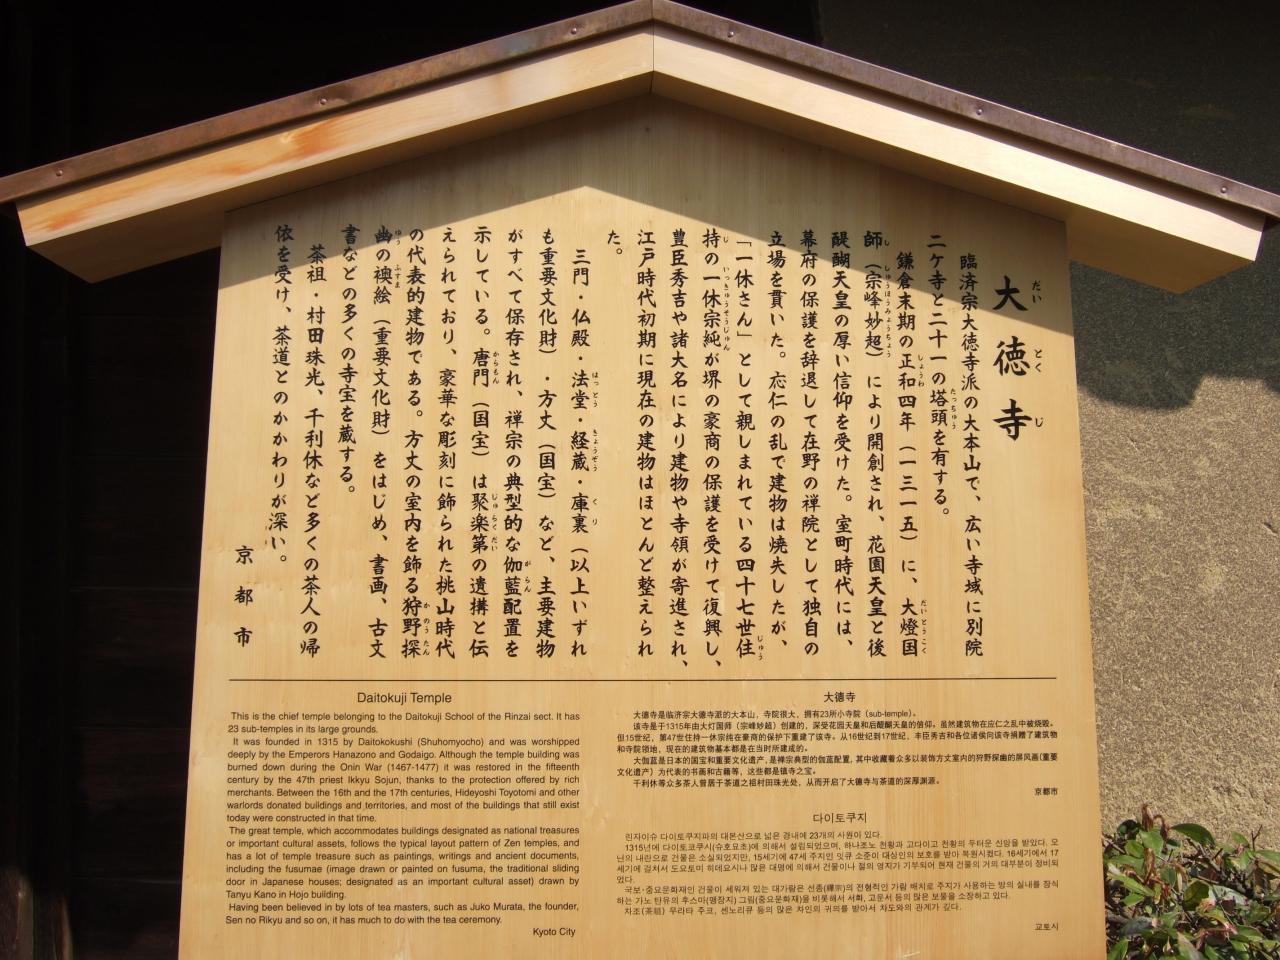 大徳寺
臨済宗大徳寺派の大本山で、広い寺域に別院
二ケ寺と二十一の塔頭を有する。
鎌倉末期の正和四年（一三一五）に、大燈国
師（宗峰妙超）により開創され、花園天皇と後
醍醐天皇の厚い信仰を受けた。室町時代には、
幕府の保護を辞退して在野の禅院として独自の
立場を貫いた。応仁の乱で建物は焼失したが、
「一休さん」として親しまれている四十七世住
持の一休宗純が堺の豪商の保護を受けて復興し、
豊臣秀吉や諸大名により建物や寺領が寄進され、
江戸時代初期に現在の建物はほとんど整えられ
た。
三門・仏殿・法堂・経蔵・庫裏（以上いずれ
も重要文化財）・方丈（国宝）など、主要建物
がすべて保存され、禅宗の典型的な伽藍配置を
示している。唐門（国宝）は聚楽第の遺構と伝
えられており、豪華な彫刻に飾られた桃山時代
の代表的建物である。方丈の室内を飾る狩野探
幽の襖絵（重要文化財）をはじめ、書画、古文
書などの多くの寺宝を蔵する。
茶祖・村田珠光、千利休など多くの茶人の帰
依を受け、茶道とのかかわりが深い。
京都市
Daitokuji Temple
This is the chief temple belonging to the Daitokuji School of the Rinzai sect. It has
23 sub-temples in its large grounds.
It was founded in 1315 by Daitokokushi (Shuhomyocho) and was worshipped
deeply by the Emperors Hanazono and Godaigo. Although the temple building was
burned down during the Onin War (1467-1477) it was restored in the fifteenth
century by the 47th priest Ikkyu Sojun, thanks to the protection offered by rich
merchants. Between the 16th and the 17th centuries, Hideyoshi Toyotomi and other
warlords donated buildings and territories, and most of the buildings that still exist
today were constructed in that time.
The great temple, which accommodates buildings designated as national treasures
or important cultural assets, follows the typical layout pattern of Zen temples, and
has a lot of temple treasure such as paintings, writings and ancient documents,
including the fusumae (image drawn or painted on fusuma, the traditional sliding
door in Japanese houses; designated as an important cultural asset) drawn by
Tanyu Kano in Hojo building.
Having been believed in by lots of tea masters, such as Juko Murata, the founder,
Sen no Rikyu and so on, it has much to do with the tea ceremony.
Kyoto City
大德寺
大德寺是临济宗大德寺派的大本山，寺院很大，拥有23所小寺院（sub-temple）。
该寺是于1315年由大灯国师（宗峰妙超）创建的，深受花园天皇和后醍醐天皇的信仰。虽然建筑物在应仁之乱中被烧毁，
但15世纪，第47世住持一休宗纯在豪商的保护下重建了该寺。从16世纪到17世纪，丰臣秀吉和各位诸侯向该寺捐赠了建筑物
和寺院领地，现在的建筑物基本都是在当时所建成的。
大伽蓝是日本的国宝和重要文化遗产，是禅宗典型的伽蓝配置，其中收藏着众多以装饰方丈室内的狩野探幽的屏风画（重要
文化遗产）为代表的书画和古籍等，这些都是镇寺之宝。
千利休等众多茶人曾居于茶道之祖村田珠光处，从而开启了大德寺与茶道的深厚渊源。
京都市
다이토쿠지
린자이슈 다이토쿠지파의 대본산으로 넓은 경내에 23개의 사원이 있다.
1315년에 다이토코쿠시(슈호묘초)에 의해서 설립되었으며, 하나조노 천황과 고다이고 천황의 두터운 신앙을 받았다. 오
닌의 내란으로 건물은 소실되었지만, 15세기에 47세 주지인 잇큐 소준이 대상인의 보호를 받아 복원시켰다. 16세기에서 17
세기에 걸쳐서 도요토미 히데요시나 많은 대명에 의해서 건물이나 절의 영지가 기부되어 현재 건물의 거의 대부분이 정비되
었다.
국보·중요문화재인 건물이 세워져 있는 대가람은 선종(禪宗)의 전형적인 가람 배치로 주지가 사용하는 방의 실내를 장식
하는 가노 탄유의 후스마(맹장지) 그림(중요문화재)을 비롯해서 서화, 고문서 등의 많은 보물을 소장하고 있다.
차조(茶祖) 무라타 주코, 센노리큐 등의 많은 차인의 귀의를 받아서 차도와의 관계가 깊다.
교토시